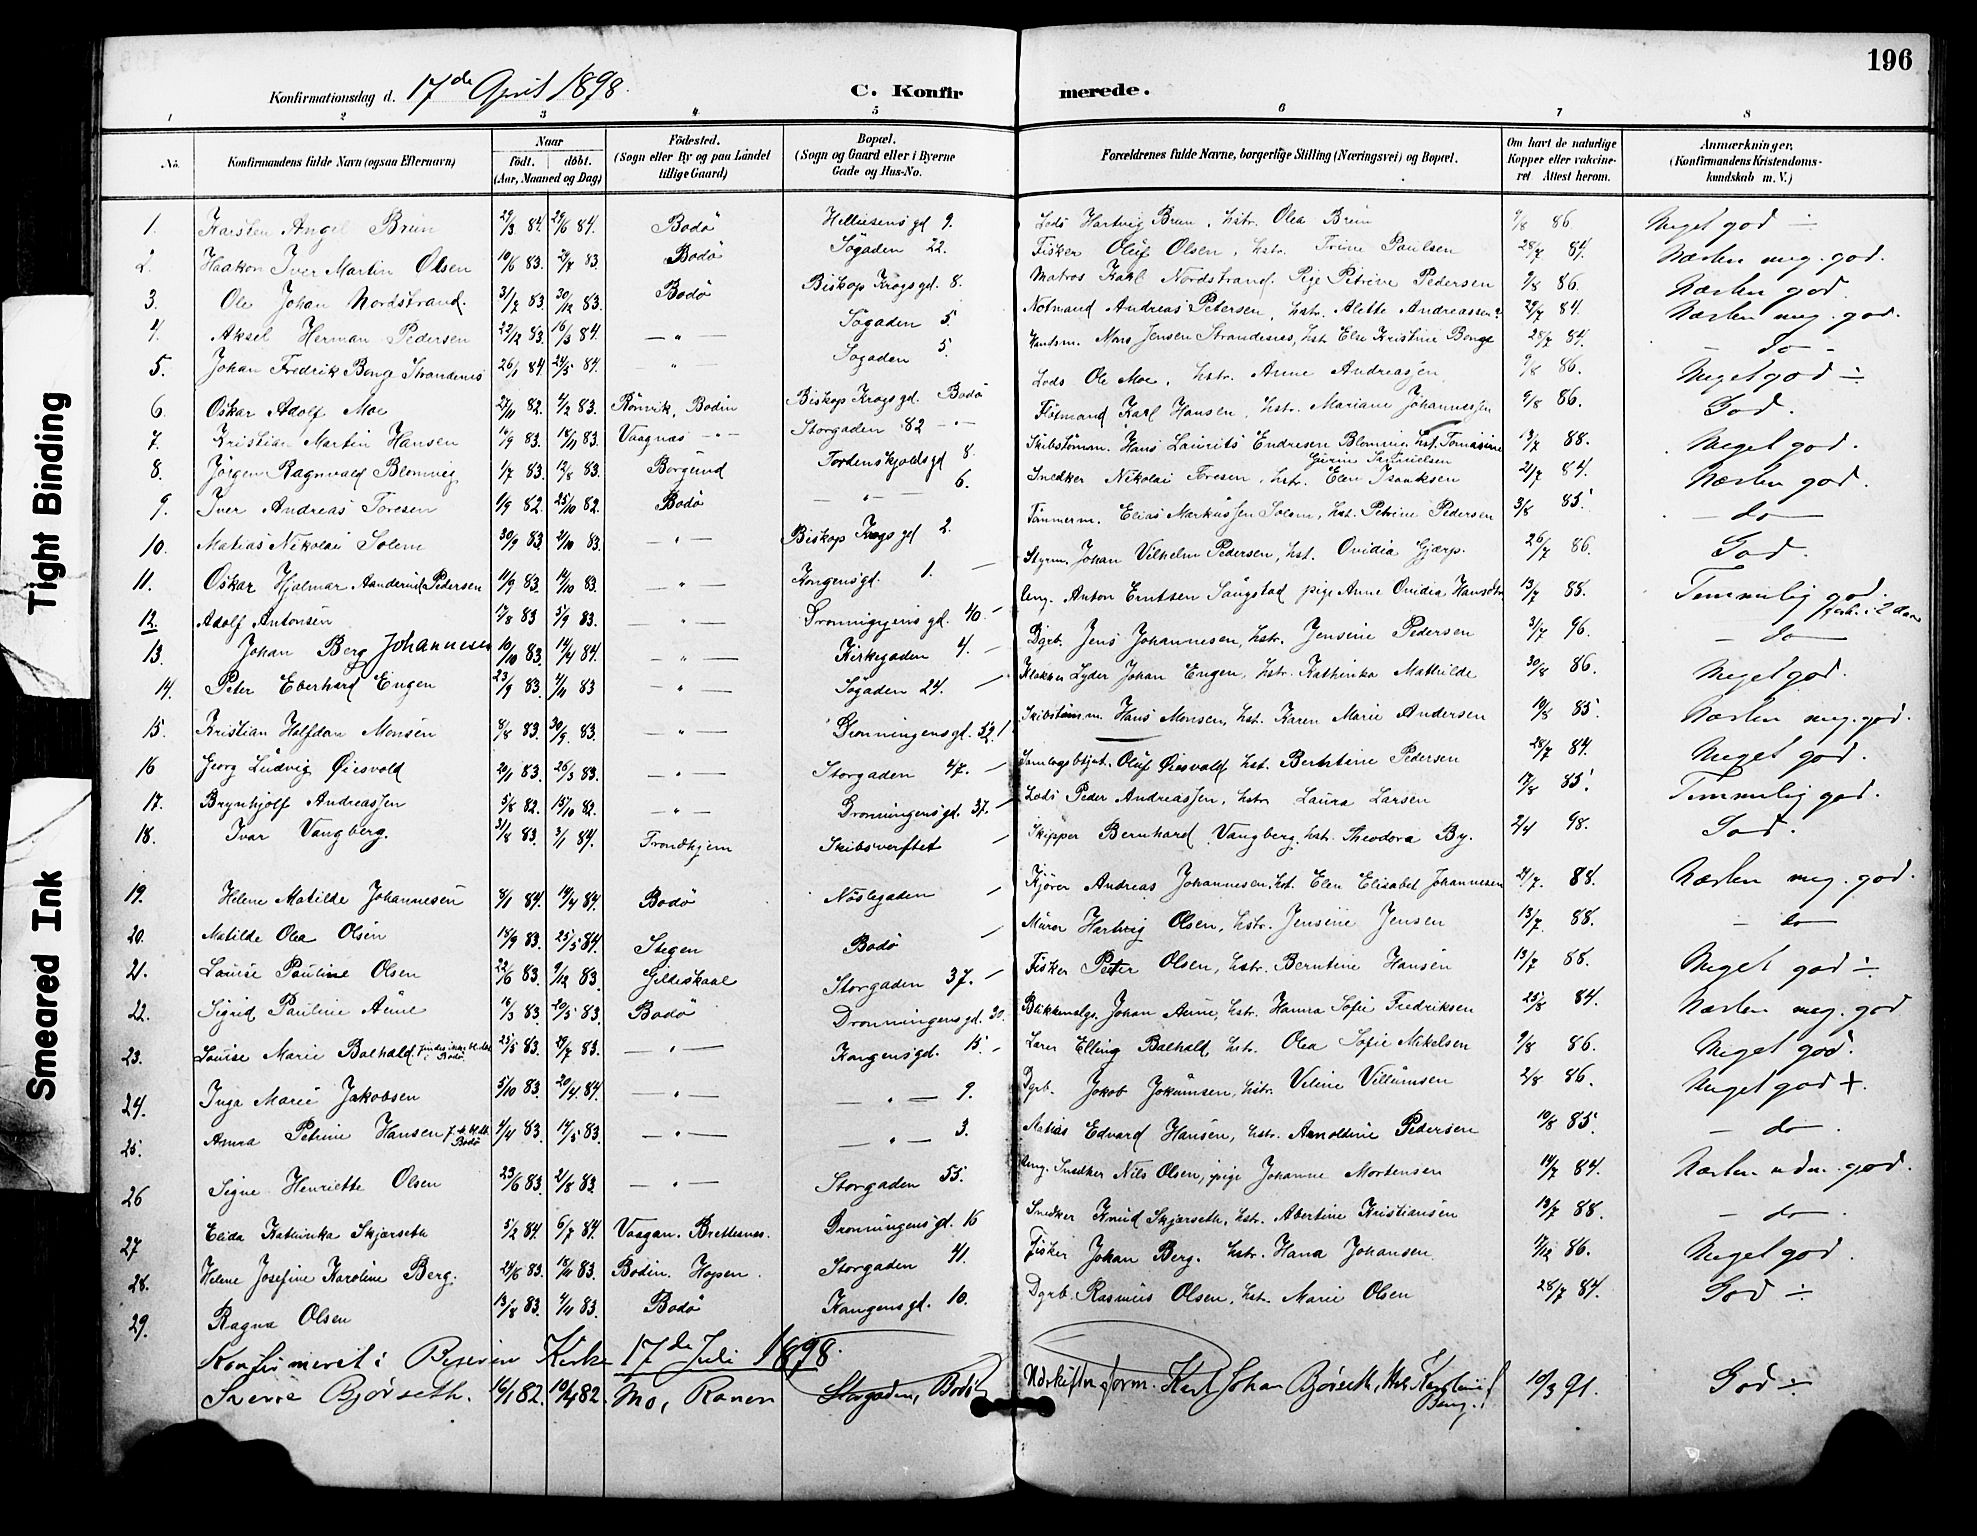 196
Konfirmationsdag d. 17de April 1898.
C. Konfirmerede.
1 2 3 4 5 6 7 8
No. Konfirmandens fulde Navn (ogsaa Efternavn) Naar födt. döbt. (Aar, Maaned og Dag) Födested. (Sogn eller By og paa Landet tillige Gaard) Bopæl. (Sogn og Gaard eller i Byerne Gade og Hus-No. Forældrenes fulde Navne, borgerlige Stilling (Næringsvei) og Bopæl. Om havt de naturlige Kopper eller vakcineret Attest herom. Anmærkninger. (Konfirmandens Kristendomskundskab m. V.)
1. Karsten Angel Brun 29/3 84. 29/6 84. Bodö Hellesensgd 9. Lods Hartvig Brun, hstr. Olea Brun 9/8 86 Meget god ÷
2. Haakon Iver Martin Olsen 10/6 83. 29/7 83. Bodö Sögaden 22. Fisker Oluf Olsen, hstr. Trine Paulsen 28/7 84. Næsten meg. god.
3. Ole Johan Nordstrand. 31/7 83. 30/12 83. Bodö Biskop Krogsgd. 8. Matros Karl Nordstrand. Pige Petrine Pedersen 9/8 86. Næsten god.
4. Aksel Herman Pedersen 22/12 83. 16/3 84. — " — Sögaden 5. Notmand Andreas Petersen, hstr. Alette Andreassen 29/7 84. Næsten meg. god.
5. Johan Fredrik Bong Strandenes 26/1 84. 24/5 84. — " — Sögaden 5. Mons Jensen Strandenes, hst Else Kristine Bonge 28/7 84. – do –
6. Oskar Adolf Moe 27/11 82. 4/2 83. Rönvik, Bodin Biskop Krogsgd. Bodö Lods Ole Moe, hstr. Anne Andreassen 9/8 86. Meget god ÷
7. Kristian Martin Hansen 16/9 83. 18/11 83. Vaagnæs – " – Storgaden 82 – " – Karl Hansen, hstr. Mariane Johannessen 9/8 86. God.
8. Jörgen Ragnvald Blomvig 1/7 83. 12/8 83. Borgund Tordenskjoldsgd 8. Skibstömm. Hans Laurits Endresen Blomvig hst. Tomasine Gurine Samuelsen 13/7 88. Meget god.
9. Iver Andreas Toresen 1/9 82. 25/10 82. Bodö — " — 6. Snedker Nikolai Toresen, hstr. Elen Isaaksen 21/7 84. Næsten god.
10. Matias Nikolai Solem 30/9 83. 2/10 83. — " — Biskop Krogs gd 2. Tömmerm. Elias Markussen Solem, hst. Petrine Pedersen 3/8 85. – do –
11. Oskar Hjalmar Pedersen 11/9 83. 14/10 83. — " — Kongensgd. 1. Styrm. Johan Vilhelm Pedersen, hst. Ovidia Gjærp. 26/7 86. God.
12. Adolf Antonsen 17/8 83 5/9 83. — " — Dronningensgd. 40. Ung. Anton Erntsen Saugstad pige Anne Ovidia Hansdtr 13/7 88. Temmelig god.
13. Johan Berg Johannesen 10/10 83. 14/4 84. — " — Kirkegaden 4. Dgrb. Jens Johannesen, hstr. Jensine Pedersen 3/7 96. – do –
14. Peter Eberhard Engen 23/9 83. 4/11 83 — " — Sögaden 24. Klokker Lyder Johan Engen, hstr. Kathinka Mathilde 30/8 86. Meget god.
15. Kristian Halfdan Monsen 8/8 83. 30/9 83. — " — Dronningensgd. 32. Skibstömm. Hans Monsen, hst. Karen Marie Andersen 19/8 85. Næsten meg. god.
16 Georg Ludvig Öiesvold 20/1 83. 26/3 83. — " — Storgaden 47. Oluf Öiesvold hst. Berntine Pedersen 28/7 84. Meget god.
17. Brynhjolf Andreassen 5/8 82. 15/10 82. — " — Dronningensgd. 37. Lods Peder Andreassen, hstr Laura Larsen 17/8 85. Temmelig god.
18. Ivar Vangberg. 31/8 83. 3/1 84. Trondhjem Skibsverftet Skipper Bernhard Vangberg, hst. Theodora By. 2/4 98. God.
19. Helene Matilde Johannesen 8/1 84. 14/4 84. Bodö Kjörer Andreas Johannesen, hst. Elen Elisabet Johannesen 21/7. 88. Næsten meg. god.
20. Matilde Olea Olsen 18/9 83. 25/5 84. Stegen Bodö Murer Hartvig Olsen, hstr. Jensine Jensen 13/7 88. – do –
21. Louise Pauline Olsen 22/6 83. 9/12 83. Gildeskaal Storgaden 37. Fisker Peter Olsen, hstr. Berntine Hansen 13/7 88. Meget god ÷
22. Sigrid Pauline Aune 16/3 83. 20/5 83. Bodö Dronningensgd. 30. Blikkenslg. Johan Aune, hstr. Hanna Sofie Fredriksen 25/8 84. Næsten meg. god
23. Louise Marie Balhald 25/5 83. 29/7 83. — " — Kongensgd. 15. Lærer Elling Balhald, hstr. Olea Sofie Mikelsen 9/8 86. Meget god.
24. Inga Marie Jakobsen 5/10 83. 20/4 84. — " — — " — 9. Dgrb. Jakob Jokumsen, hstr. Veline Villumsen 2/8 86. Meget god +.
25. Anna Petrine Hansen 4/4 83. 14/5 83. — " — — " — 3. Matias Edvard Hansen, hstr. Arnoldine Pedersen 10/8 85. – do –
26 Signe Henriette Olsen 23/6 83. 2/8 83. — " — Storgaden 55. Ung. Snedker Nils Olsen, pige Johanne Mortensen 14/7 84. god.
27 Elida Kathinka Skjærseth 5/2 84. 6/7 84. Vaagan. Brettesnes. Dronningensgd. 16 Snedker Knud Skjærseth, hstr. Abertine Kristiansen 13/7 88. – do –
28. Helene Josefine Karoline Berg. 24/6 83. 18/11 83. Bodin. Hopen. Storgaden 41. Fisker Johan Berg. hstr. Hana Johansen 4/12 86. Meget god.
29. Ragna Olsen 13/8 83. 4/11 83. Bodö Kongensgd. 10. Dgrb. Rasmus Olsen, hst. Marie Olsen 28/7 84. God ÷
Konfirmeret i Kirke 17de Juli 1898.
Sverre Bjørseth. 16/1 82. 10/4 82. Mo, Ranen Storgaden, Bodö Karl Johan Bjørseth, Karoline Berg. 10/3 91. God ÷
Tight Binding
Smeared Ink